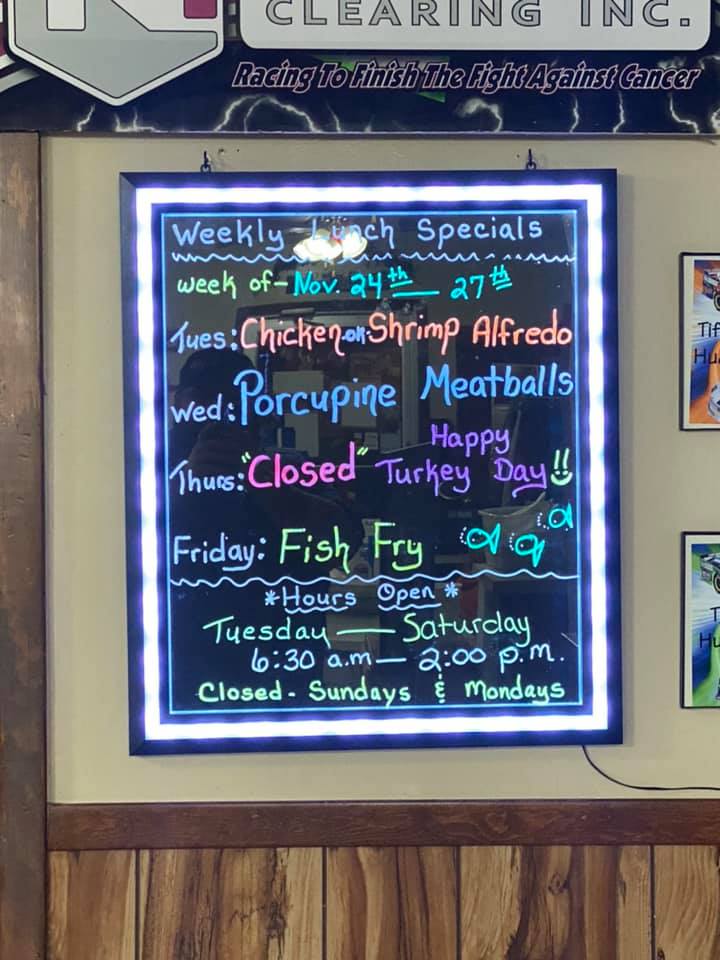 CLEARING INC.
Racing To Finish The Fight Against Cancer
Weekly Lunch Specials
week of - Nov. 24th — 27th
Tues: Chicken or Shrimp Alfredo
Wed: Porcupine Meatballs
Thurs: "Closed" Happy Turkey Day!!
Friday: Fish Fry
*Hours Open*
Tuesday — Saturday
6:30 a.m — 2:00 p.m.
Closed - Sundays & Mondays